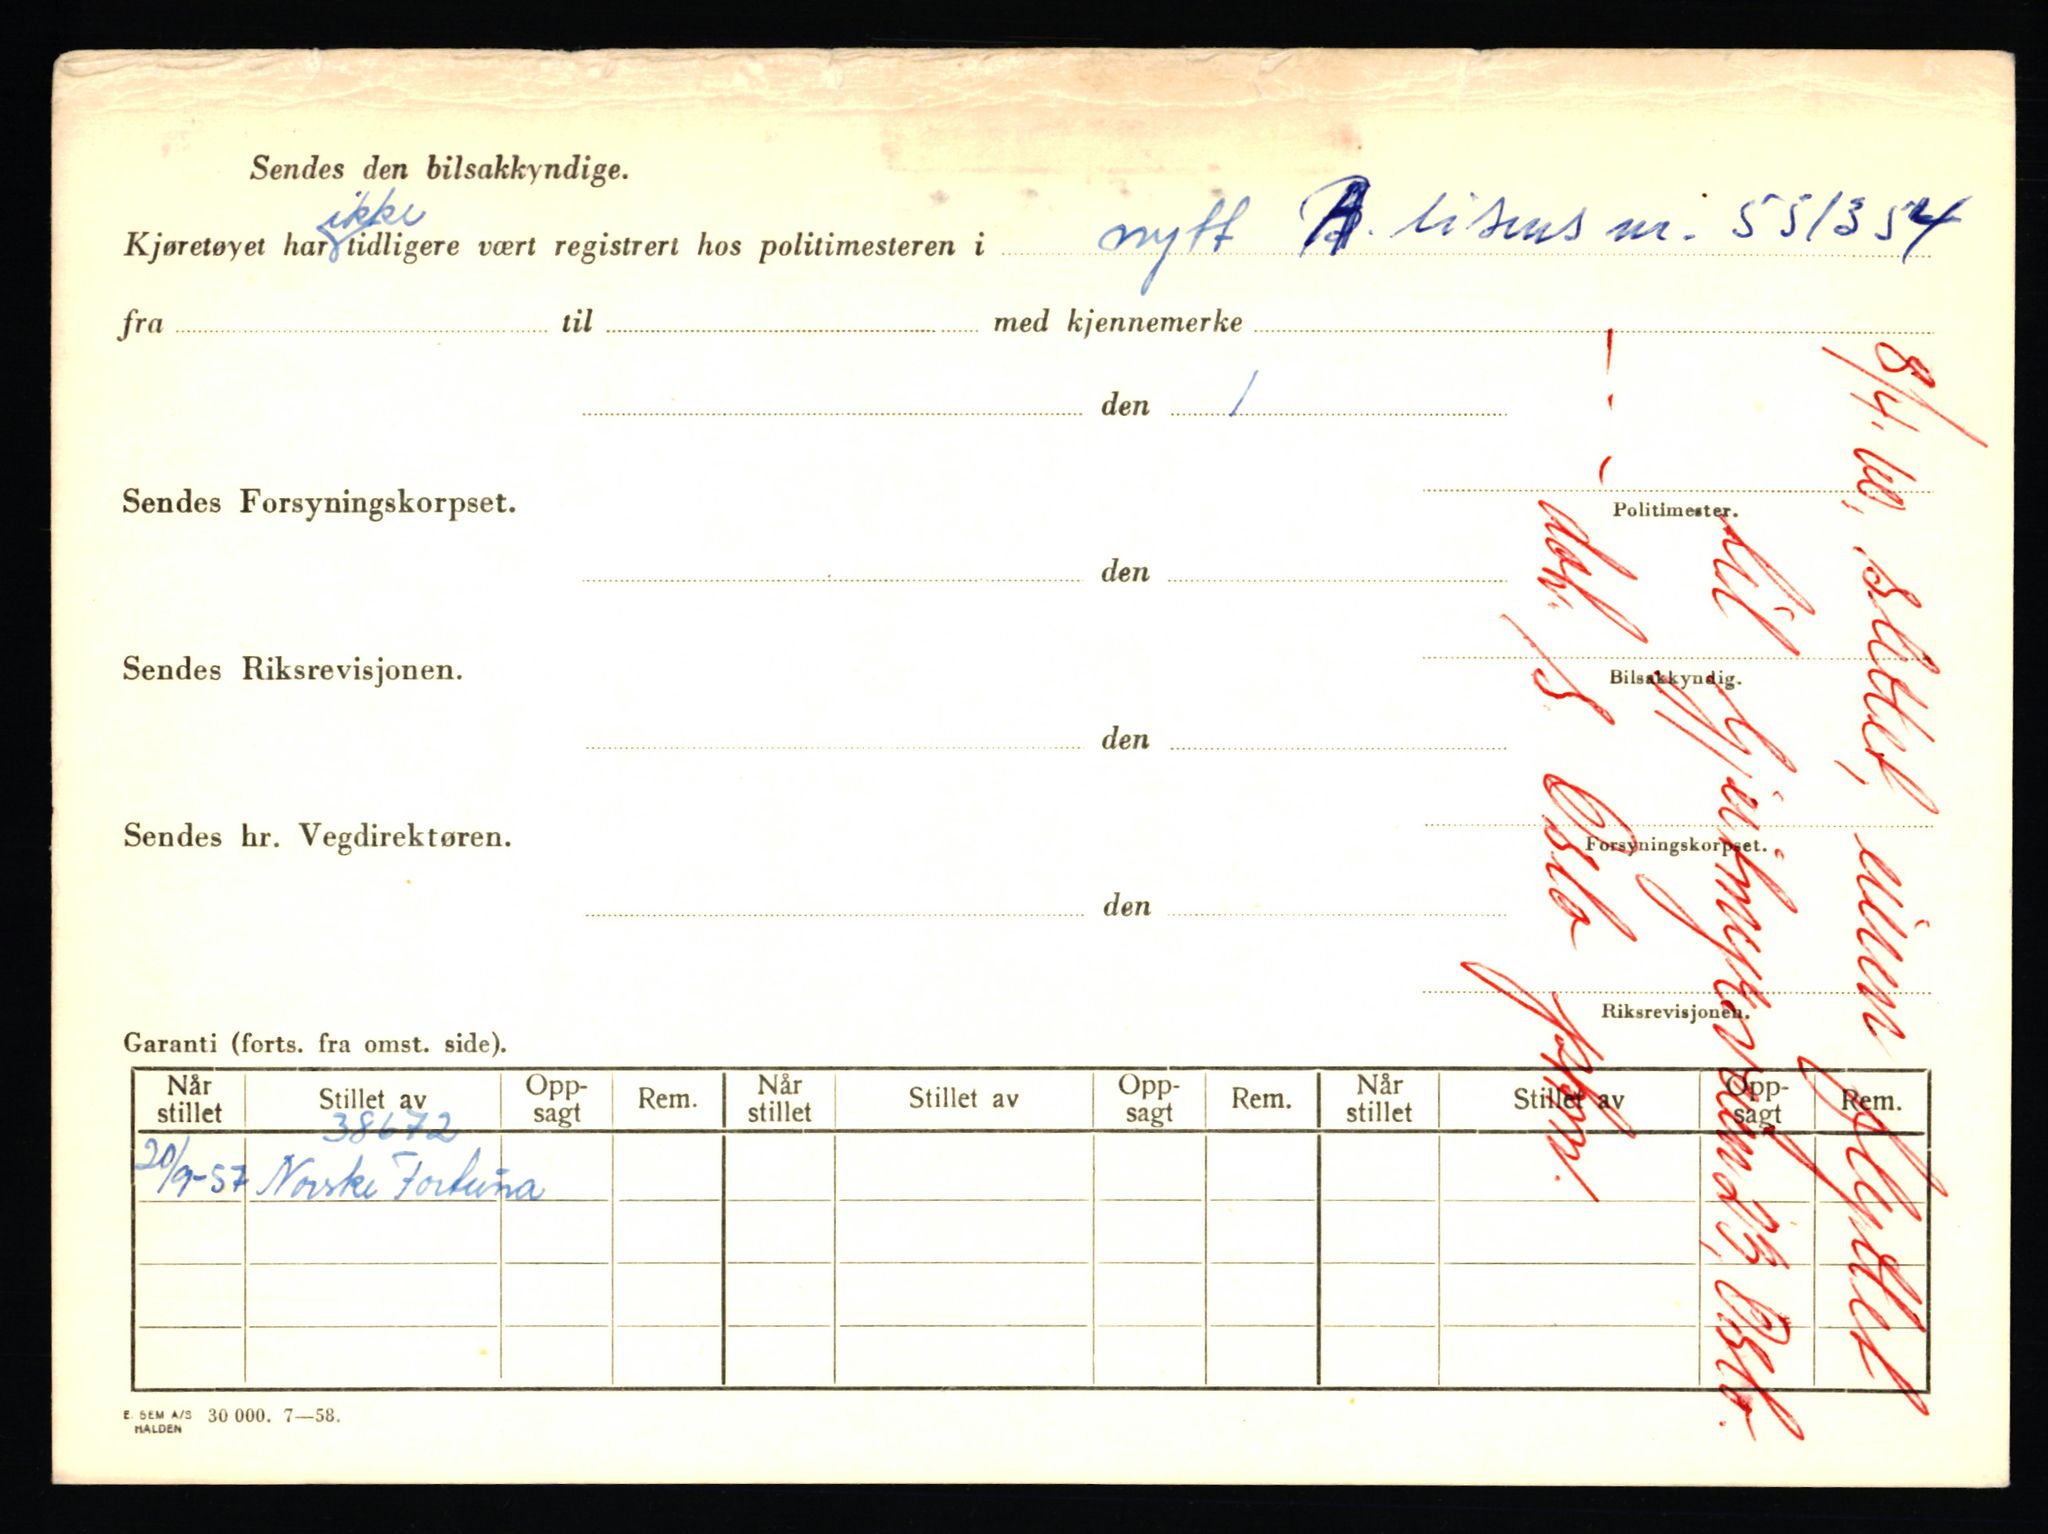 Sendes den bilsakkyndige.
ikke
Kjøretøyet har tidligere vært registrert hos politimesteren i nytt A. lisens nr. 551354
fra til med kjennemerke
den /
Sendes Forsyningskorpset.
Politimester.
den
Sendes Riksrevisjonen.
Bilsakkyndig.
den
Sendes hr. Vegdirektøren.
Forsyningskorpset.
den
Riksrevisjonen.
Garanti (forts. fra omst. side).
Når stillet Stillet av Opp-sagt Rem. Når stillet Stillet av Opp-sagt Rem. Når stillet Stillet av Opp-sagt Rem.
38672
20/9-57 Norske Fortuna
E. SEM A/S 30 000. 7—58.
HALDEN
8/4.60, Slettet, flyttet
til Oslo.
Oslo